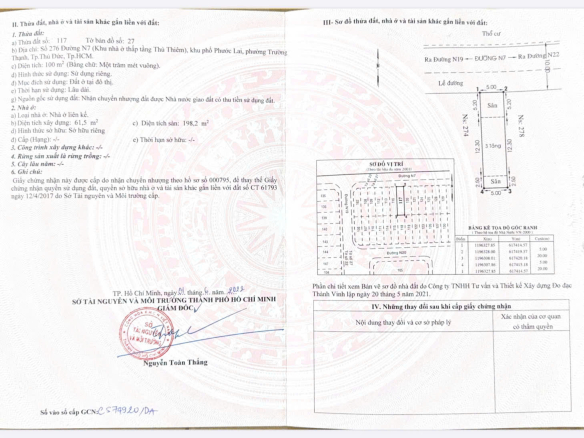 II. Thửa đất, nhà ở và tài sản khác gắn liền với đất:
1. Thửa đất:
a) Thửa đất số: 117 Tờ bản đồ số: 27
b) Địa chỉ: Số 276 Đường N7 (Khu nhà ở thấp tầng Thủ Thiêm), khu phố Phước Lai, phường Trường
Thạnh, Tp.Thủ Đức, Tp.HCM.
c) Diện tích: 100 m² (Bằng chữ: Một trăm mét vuông).
d) Hình thức sử dụng: Sử dụng riêng.
đ) Mục đích sử dụng: Đất ở tại đô thị.
e) Thời hạn sử dụng: Lâu dài.
g) Nguồn gốc sử dụng đất: Nhận chuyển nhượng đất được Nhà nước giao đất có thu tiền sử dụng đất.
2. Nhà ở:
a) Loại nhà ở: Nhà ở liên kế.
b) Diện tích xây dựng: 61,5 m² c) Diện tích sàn: 198,2 m²
d) Hình thức sở hữu: Sở hữu riêng
đ) Cấp (Hạng): -/- e) Thời hạn sở hữu: -/-
3. Công trình xây dựng khác: -/-
4. Rừng sản xuất là rừng trồng: -/-
5. Cây lâu năm: -/-
6. Ghi chú:
Giấy chứng nhận này được cấp do nhận chuyển nhượng theo hồ sơ số 000795, để thay thế Giấy
chứng nhận quyền sử dụng đất, quyền sở hữu nhà ở và tài sản khác gắn liền với đất số CT 61793
ngày 12/4/2017 do Sở Tài nguyên và Môi trường cấp.
TP. Hồ Chí Minh, ngày tháng
SỞ TÀI NGUYÊN VÀ MÔI TRƯỜNG THÀNH PHỐ HỒ CHÍ MINH
GIÁM ĐỐC
Nguyễn Toàn Thắng
Số vào sổ cấp GCN:
III- Sơ đồ thửa đất, nhà ở và tài sản khác gắn liền với đất:
Thổ cư
Ra Đường N19 ← ĐƯỜNG N7 → Ra Đường N22
Lề đường
1 5.00 2
Sân
Nc. 274
Nc. 278
12.30
12.30
Sân
4 5.00 3
SƠ ĐỒ VỊ TRÍ
Đường N7
117
Đường N20
BẢNG KÊ TỌA ĐỘ GÓC RANH
5.00
20.00
5.00
20.00
Phần chi tiết xem Bản vẽ sơ đồ nhà đất do Công ty TNHH Tư vấn và Thiết kế Xây dựng Đo đạc
Thành Vinh lập ngày 20 tháng 5 năm 2021.
IV. Những thay đổi sau khi cấp giấy chứng nhận
Nội dung thay đổi và cơ sở pháp lý
Xác nhận của cơ quan
có thẩm quyền